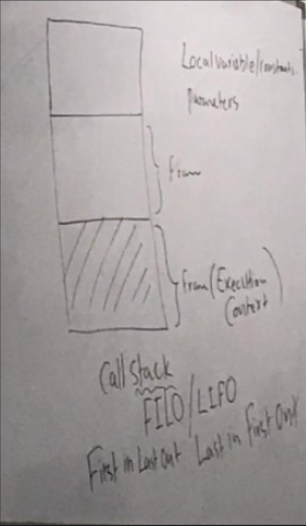 Local variable/constants
parameters
Fram
Fram (Execution
Context)
Call Stack
FILO/LIFO
First in Last Out Last in First Out